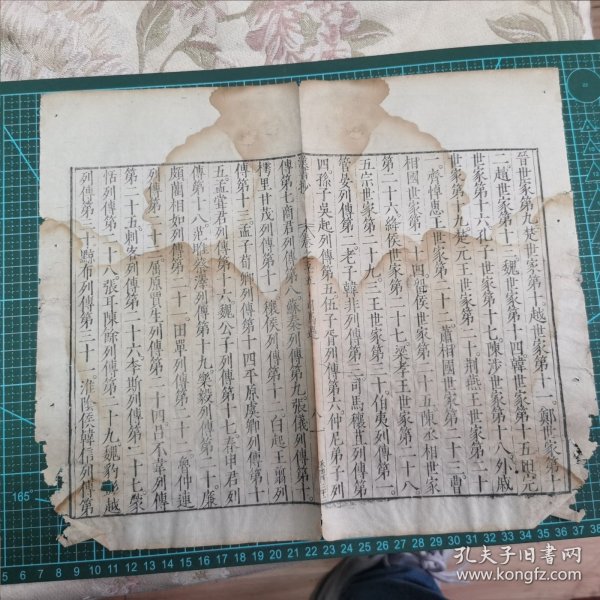 晉世家第九楚世家第十越世家第十一鄭世家第十
二趙世家第十三魏世家第十四韓世家第十五田完
世家第十六孔子世家第十七陳涉世家第十八外戚
世家第十九楚元王世家第二十荆燕王世家第二十
一齊悼惠王世家第二十二蕭相國世家第二十三曹
相國世家第二十四留侯世家第二十五陳丞相世家
第二十六絳侯世家第二十七梁孝王世家第二十八
五宗世家第二十九三王世家第三十伯夷列傳第一
管晏列傳第二老子韓非列傳第三司馬穰苴列傳第
四孫子吳起列傳第五伍子胥列傳第六仲尼弟子列
傳第七商君列傳第八蘇秦列傳第九張儀列傳第十
樗里甘茂列傳第十一穰侯列傳第十二白起王翦列
傳第十三孟子荀卿列傳第十四平原虞卿列傳第十
五孟嘗君列傳第十六魏公子列傳第十七春申君列
傳第十八范雎蔡澤列傳第十九樂毅列傳第二十廉
頗藺相如列傳第二十一田單列傳第二十二魯仲連
列傳第二十三屈原賈生列傳第二十四呂不韋列傳
第二十五刺客列傳第二十六李斯列傳第二十七蒙
恬列傳第二十八張耳陳餘列傳第二十九魏豹彭越
列傳第三十黥布列傳第三十一淮陰侯韓信列傳第
孔夫子旧書网
www.kongfz.com
165°
5 6 7 8 9 10 11 12 13 14 15 16 17 18 19 20 21 22 23 24 25 26 27 28 29 30 31 32 33 34 35 36 37 38 39 40 41